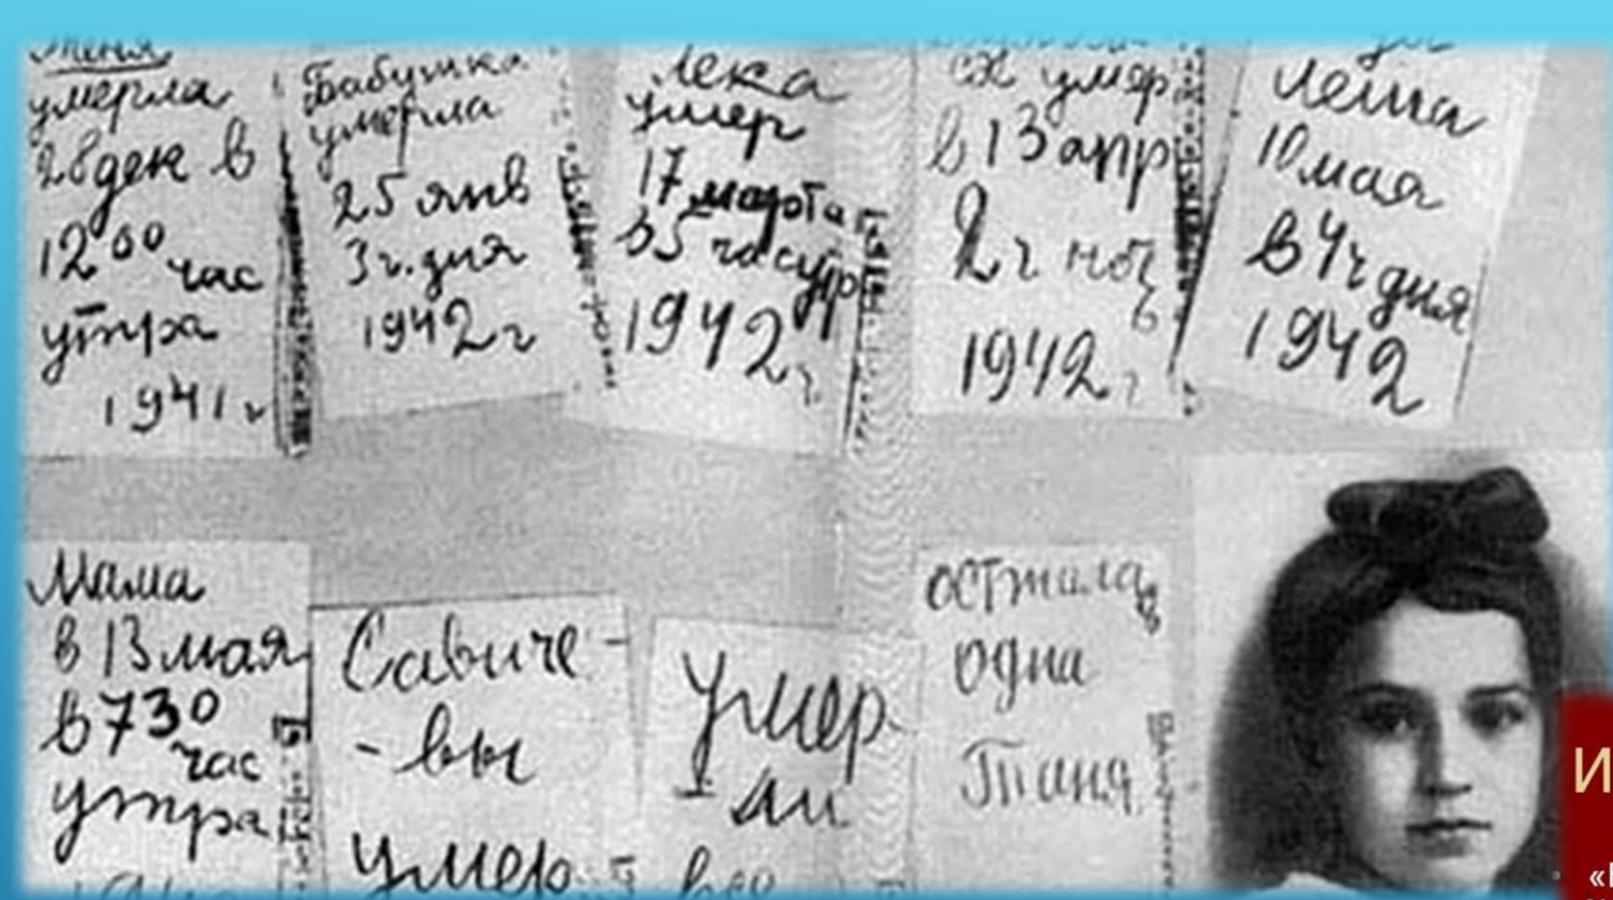 Женя
умерла
28 дек в
12 00 час
утра
1941 г
Бабушка
умерла
25 янв
3 ч. дня
1942 г
Лека
умер
17 марта
в 5 час утр
1942 г
умер
в 13 апр
2 ч ноч
1942 г
Леша
10 мая
в 4 ч дня
1942
Мама
в 13 мая
в 7 30
час
утра
Савиче-
-вы
умер
Умер
-ли
все
осталась
одна
Таня
И